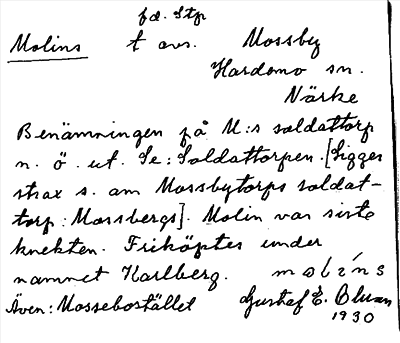 fd. Stp
Molins t avs. Mossby
Hardemo sn.
Närke
Benämningen på M:s soldattorp
n. ö. ut. Se: Soldattorpen. [Ligger
strax s. om Mossbytorps soldat-
torp: Mossbergs]. Molin var siste
knekten. Friköptes under
namnet Karlberg. molins
Även: Mossebostället Gustaf E. Bluan
1930